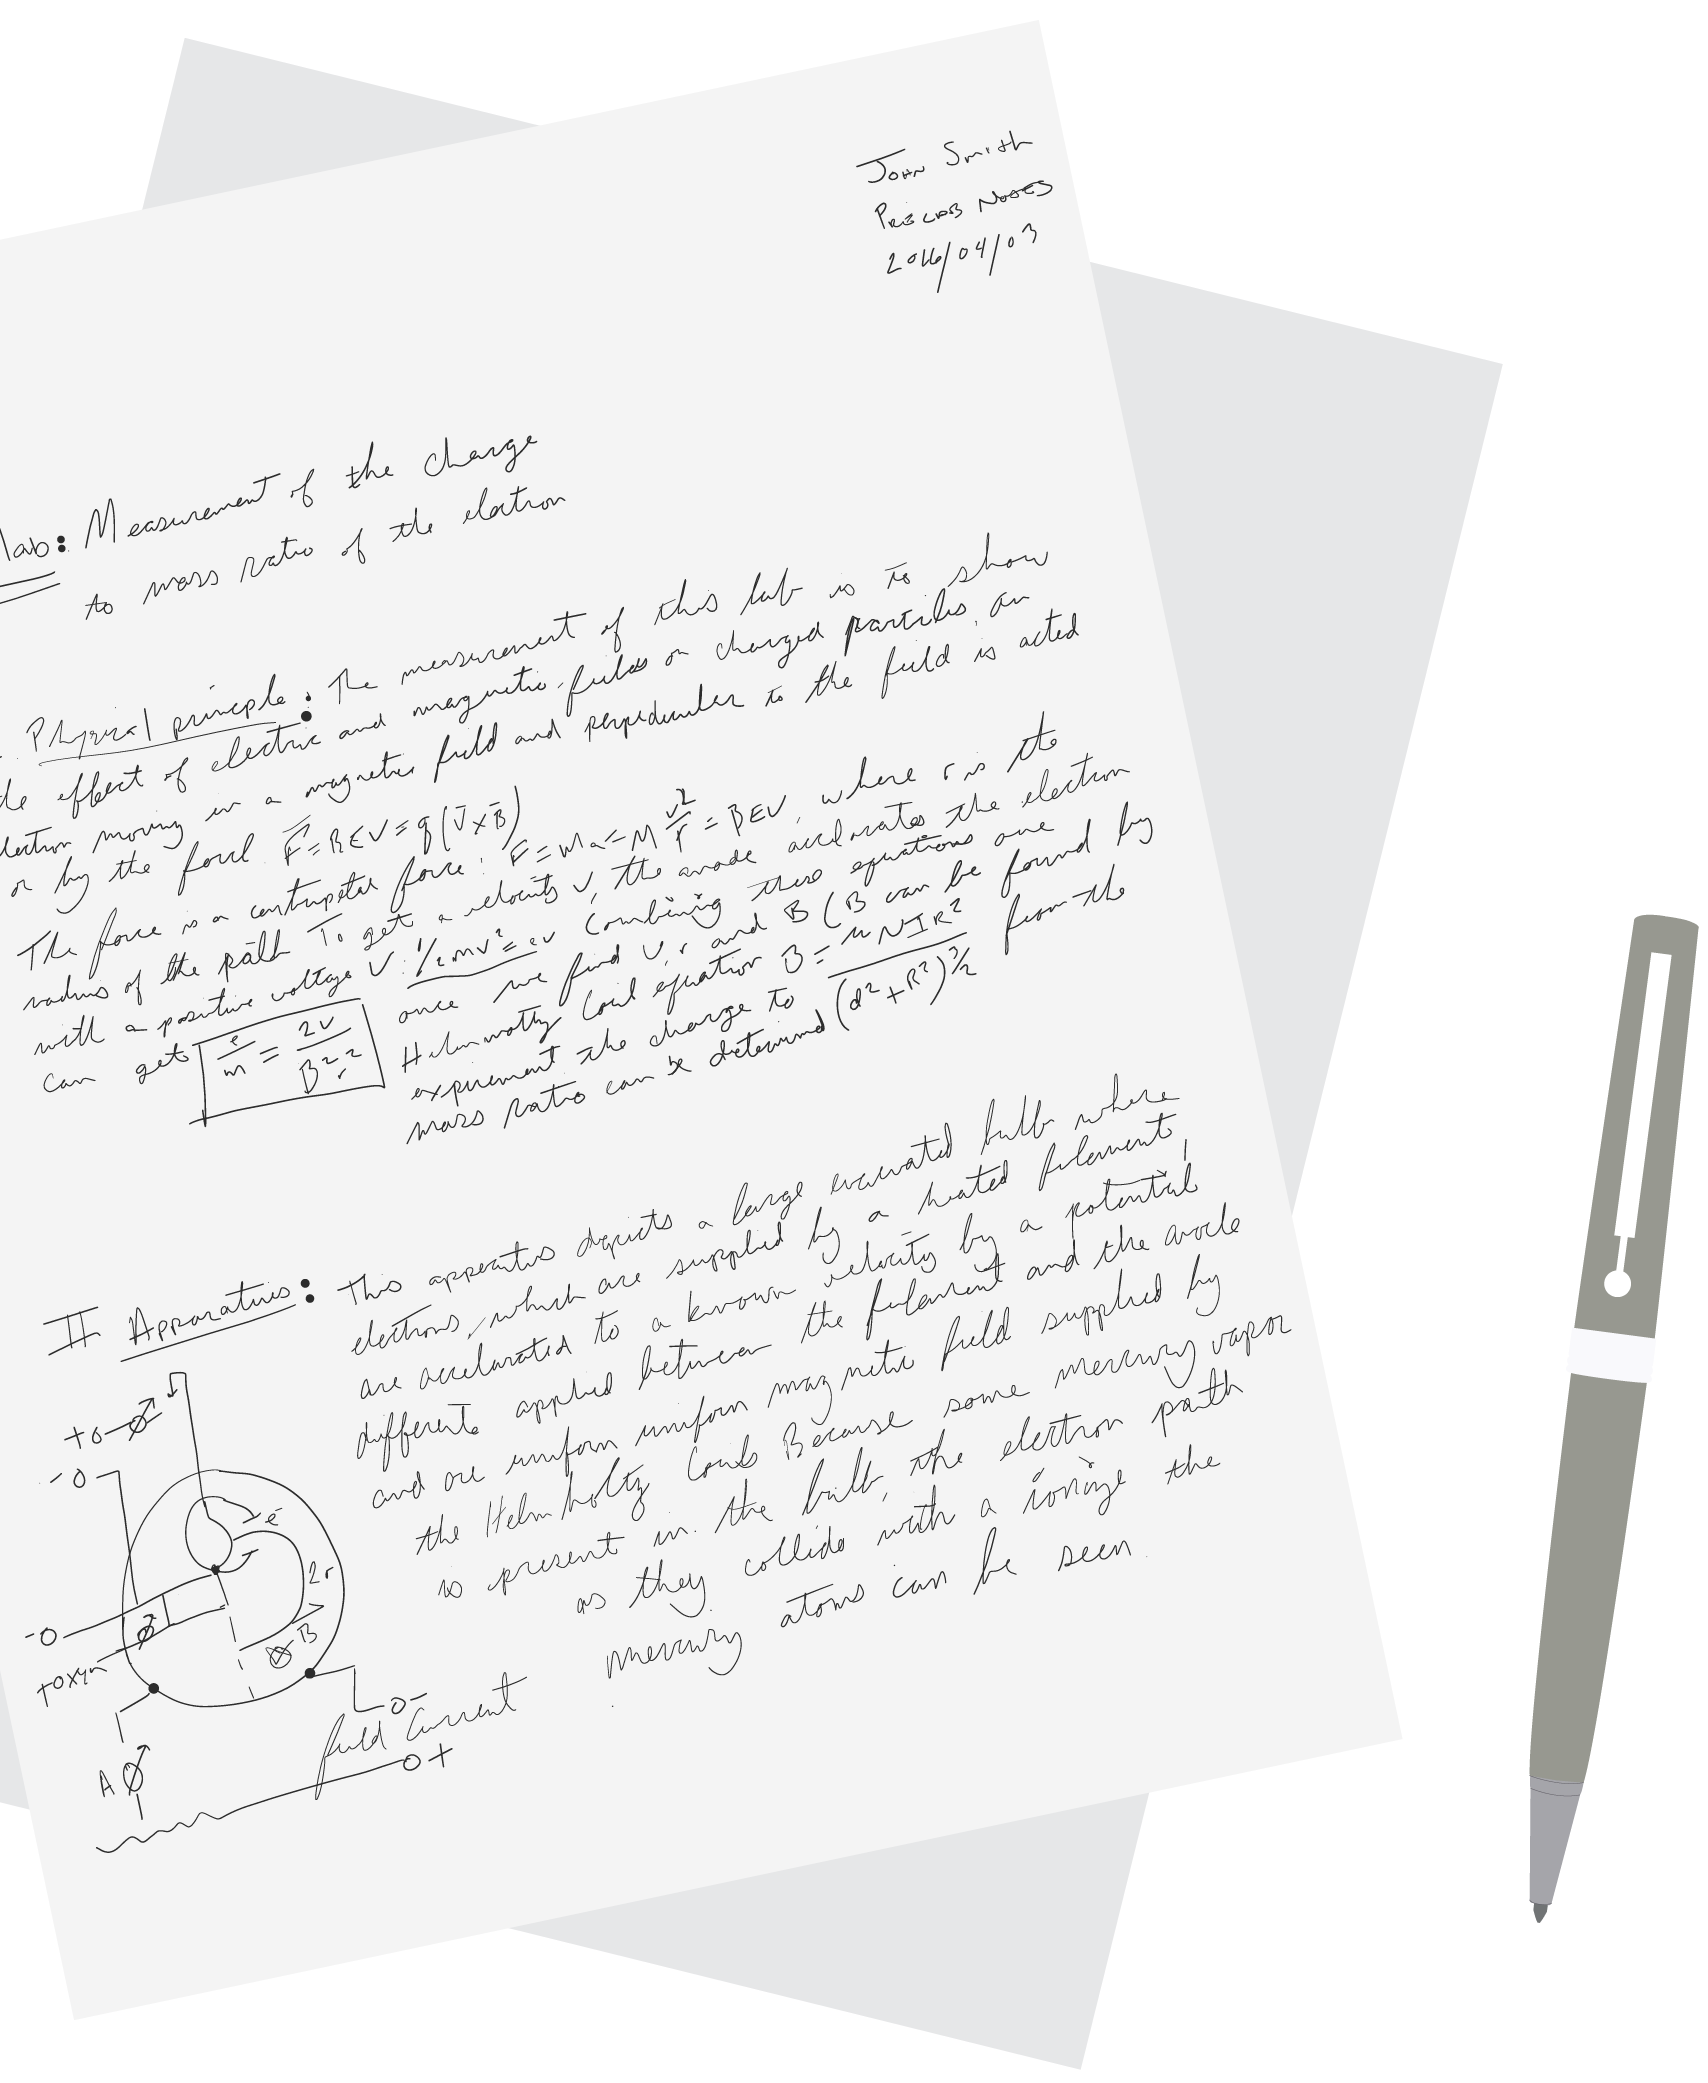 John Smith
PRELAB NOTES
2016/04/03
lab: Measurement of the charge
to mass ratio of the electron
Physical principle: The measurement of this lab is to show
effect of electric and magnetic fields on charged particles, an
lectron moving in a magnetic field and perpendicular to the field is acted
or by the force F̄=BEV=q(V̄xB̄)
The force is a centripetal force: F=ma=M v²/r = BEV, where r is the
radius of the path To get a velocity V, the anode acclerates the electron
with a positive voltage V: 1/2mv²=ev Combining these equations one
can get e/m = 2v/B²r² once we find V, r and B (B can be found by
Helmholtz Coil equation B = μNIR²/(d²+R²)^3/2 from the
expirement the charge to
mass ratio can be determined
II Apparatus: This apparatus depicts a large evacuated bulb where
electrons, which are supplied by a heated filament,
are accelarated to a known velocity by a potential
different applied between the filament and the
and are uniform uniform magnetic field supplied by
the Helmholtz Coils Because some mercury vapor
is present in the bulb, the electron path
as they collide with a ionize the
mercury atoms can be seen
+o
-o
e-
2r
B
-o
A
o-
field Current
o+